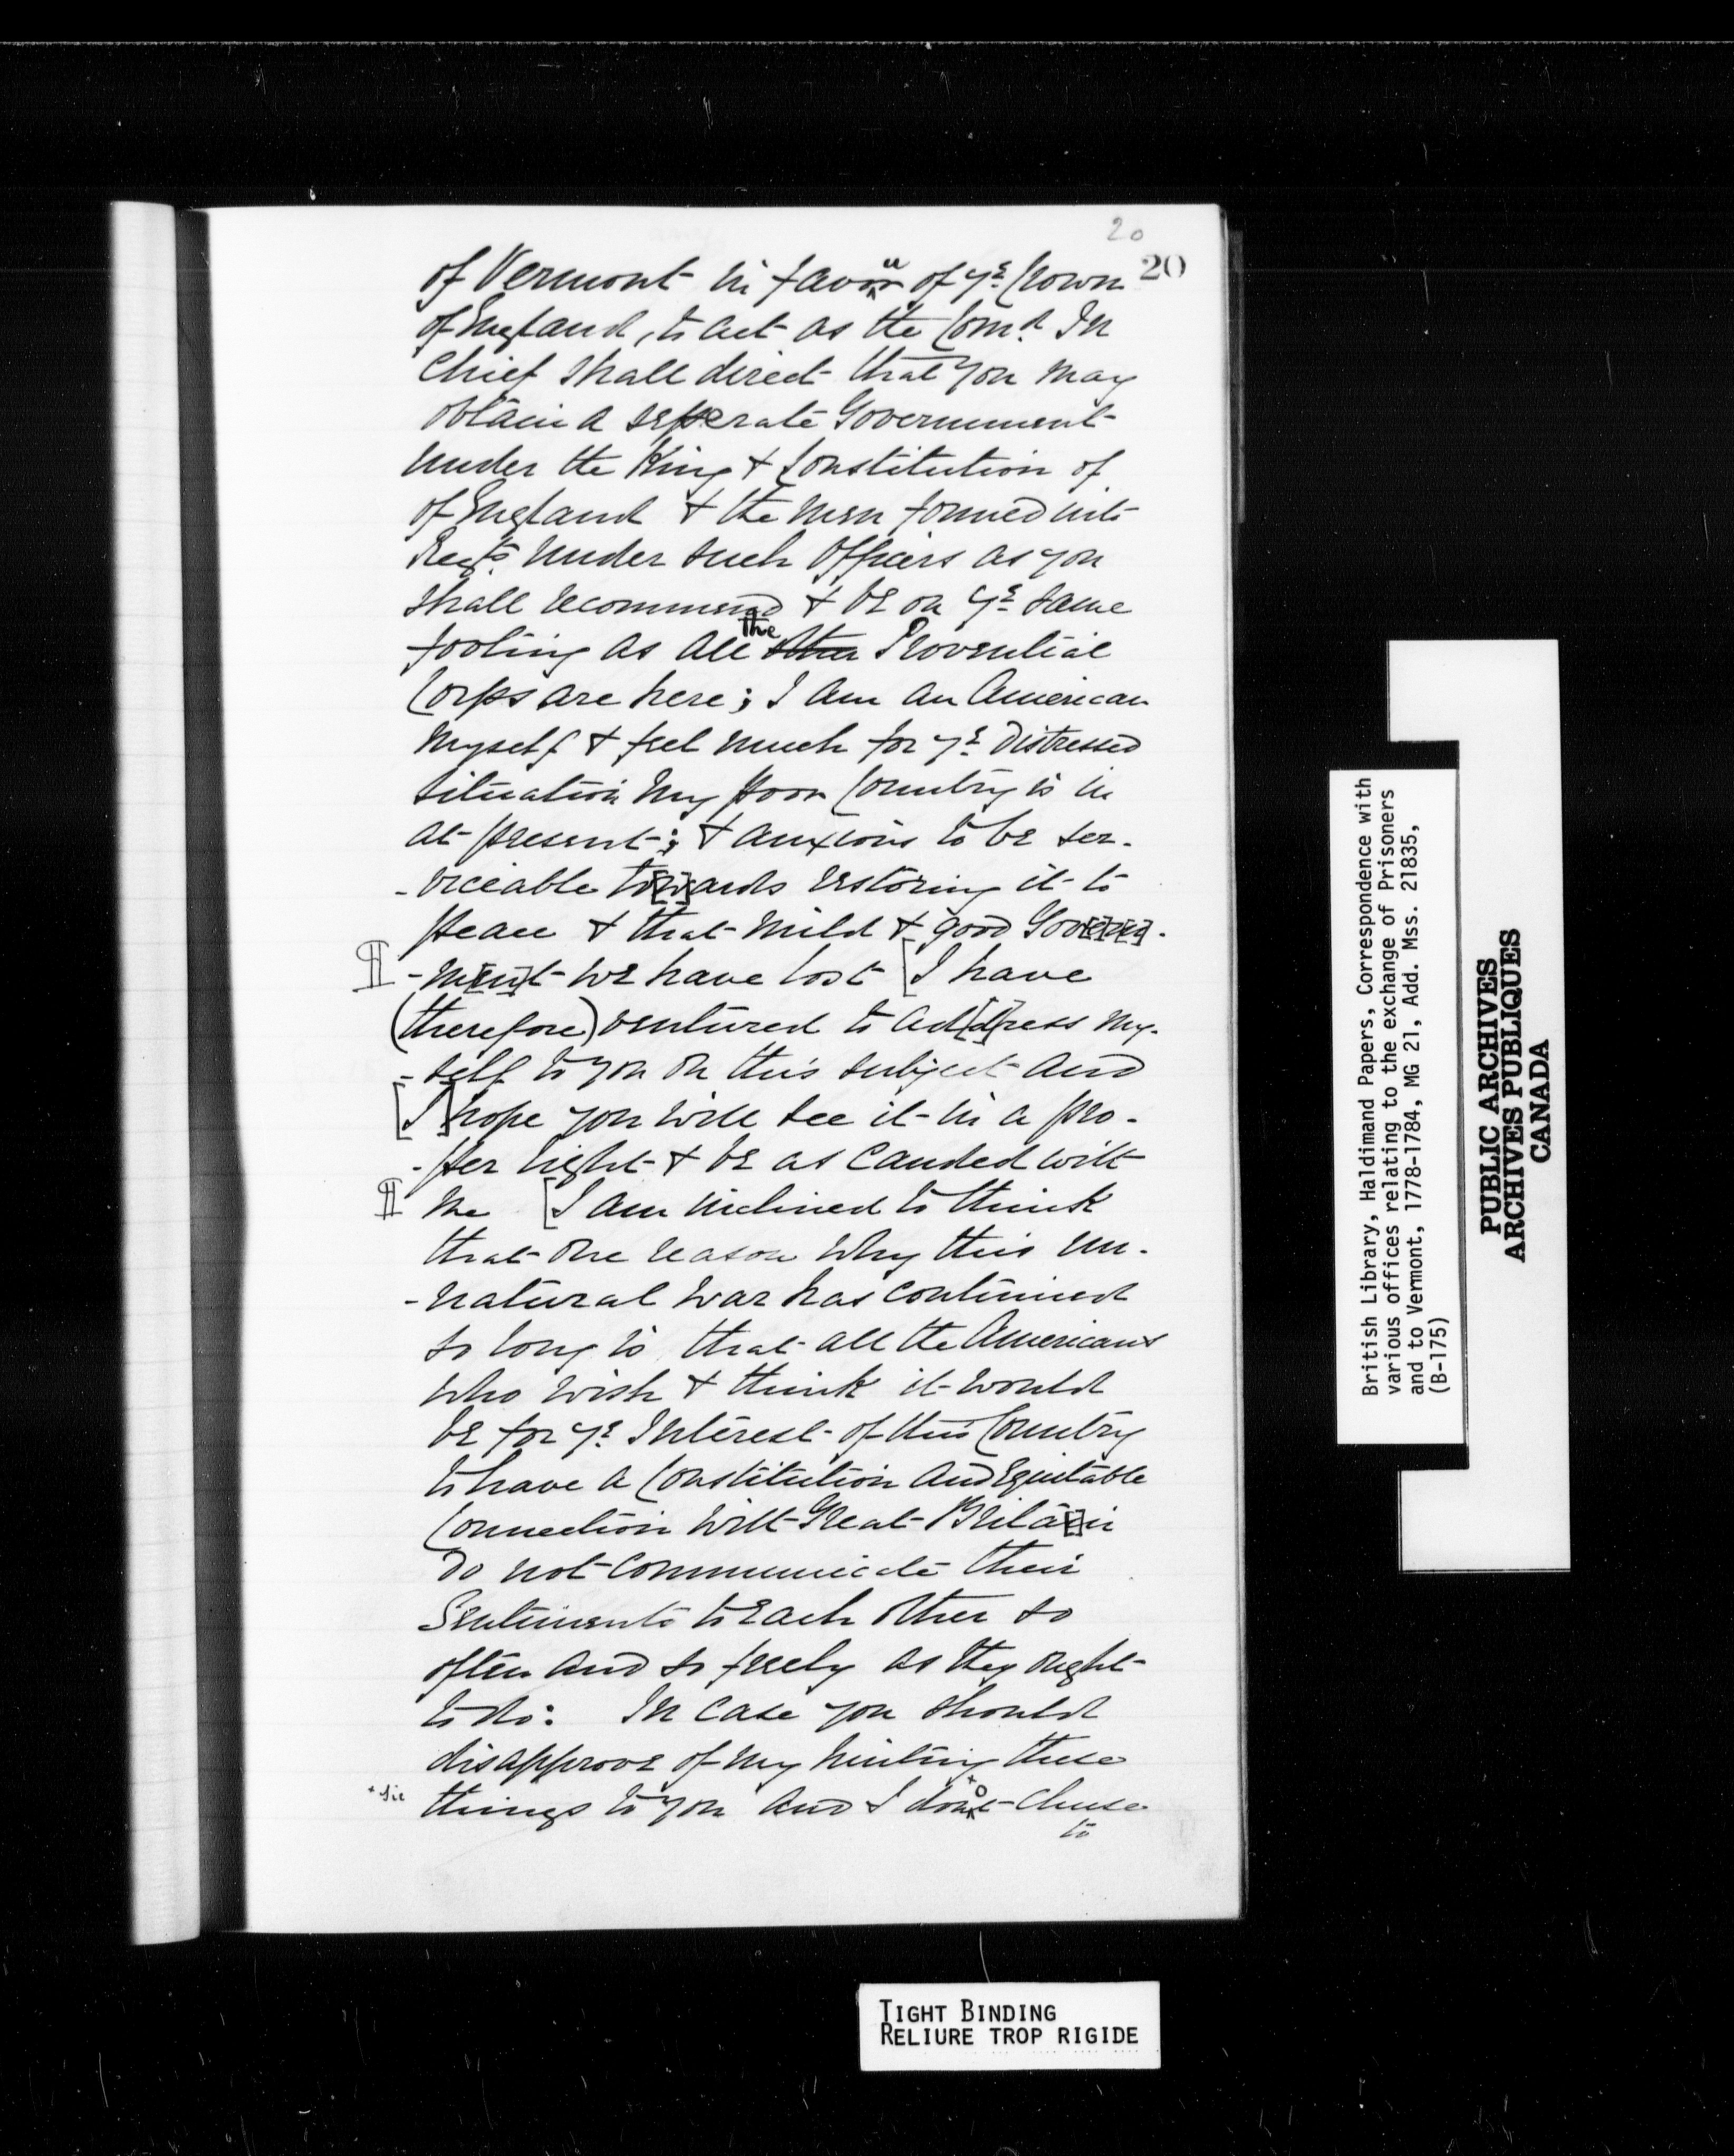 20
20
of Vermont in favour of ye Crown
of England, to act as the Comd. In
Chief shall direct that you may
obtain a seperate Government
under the King & Constitution of
of England & the men formed into
Regts. under such Officers as you
shall recommend & be on ye same
footing as all the other Provential
Corps are here; I am an American
myself & feel much for ye distressed
situation my poor Country is in
at present; & anxious to be ser-
-viceable to[w]ards restoring it to
peace & that mild & good Gov[er]n[n]-
¶ -m[en]t we have lost [I have
(therefore) ventured to ad[d]ress my-
-self to you on this subject and
[I] hope you will see it in a pro-
-per light & be as Canded with
¶ me [I am inclined to think
that one reason why this un-
-natural war has continued
so long is that all the Americans
who wish & think it would
be for ye Interest of this Country
to have a Constitution and Equitable
Connection with Great Brita[i]n
do not communicate their
Sentiments to each other so
often and so freely as they ought
to do: In case you should
disapprove of my hinting these
+ sic things to you and I do+ not Chuse
to
British Library, Haldimand Papers, Correspondence with
various offices relating to the exchange of Prisoners
and to Vermont, 1778-1784, MG 21, Add. Mss. 21835,
(B-175)
PUBLIC ARCHIVES
ARCHIVES PUBLIQUES
CANADA
TIGHT BINDING
RELIURE TROP RIGIDE